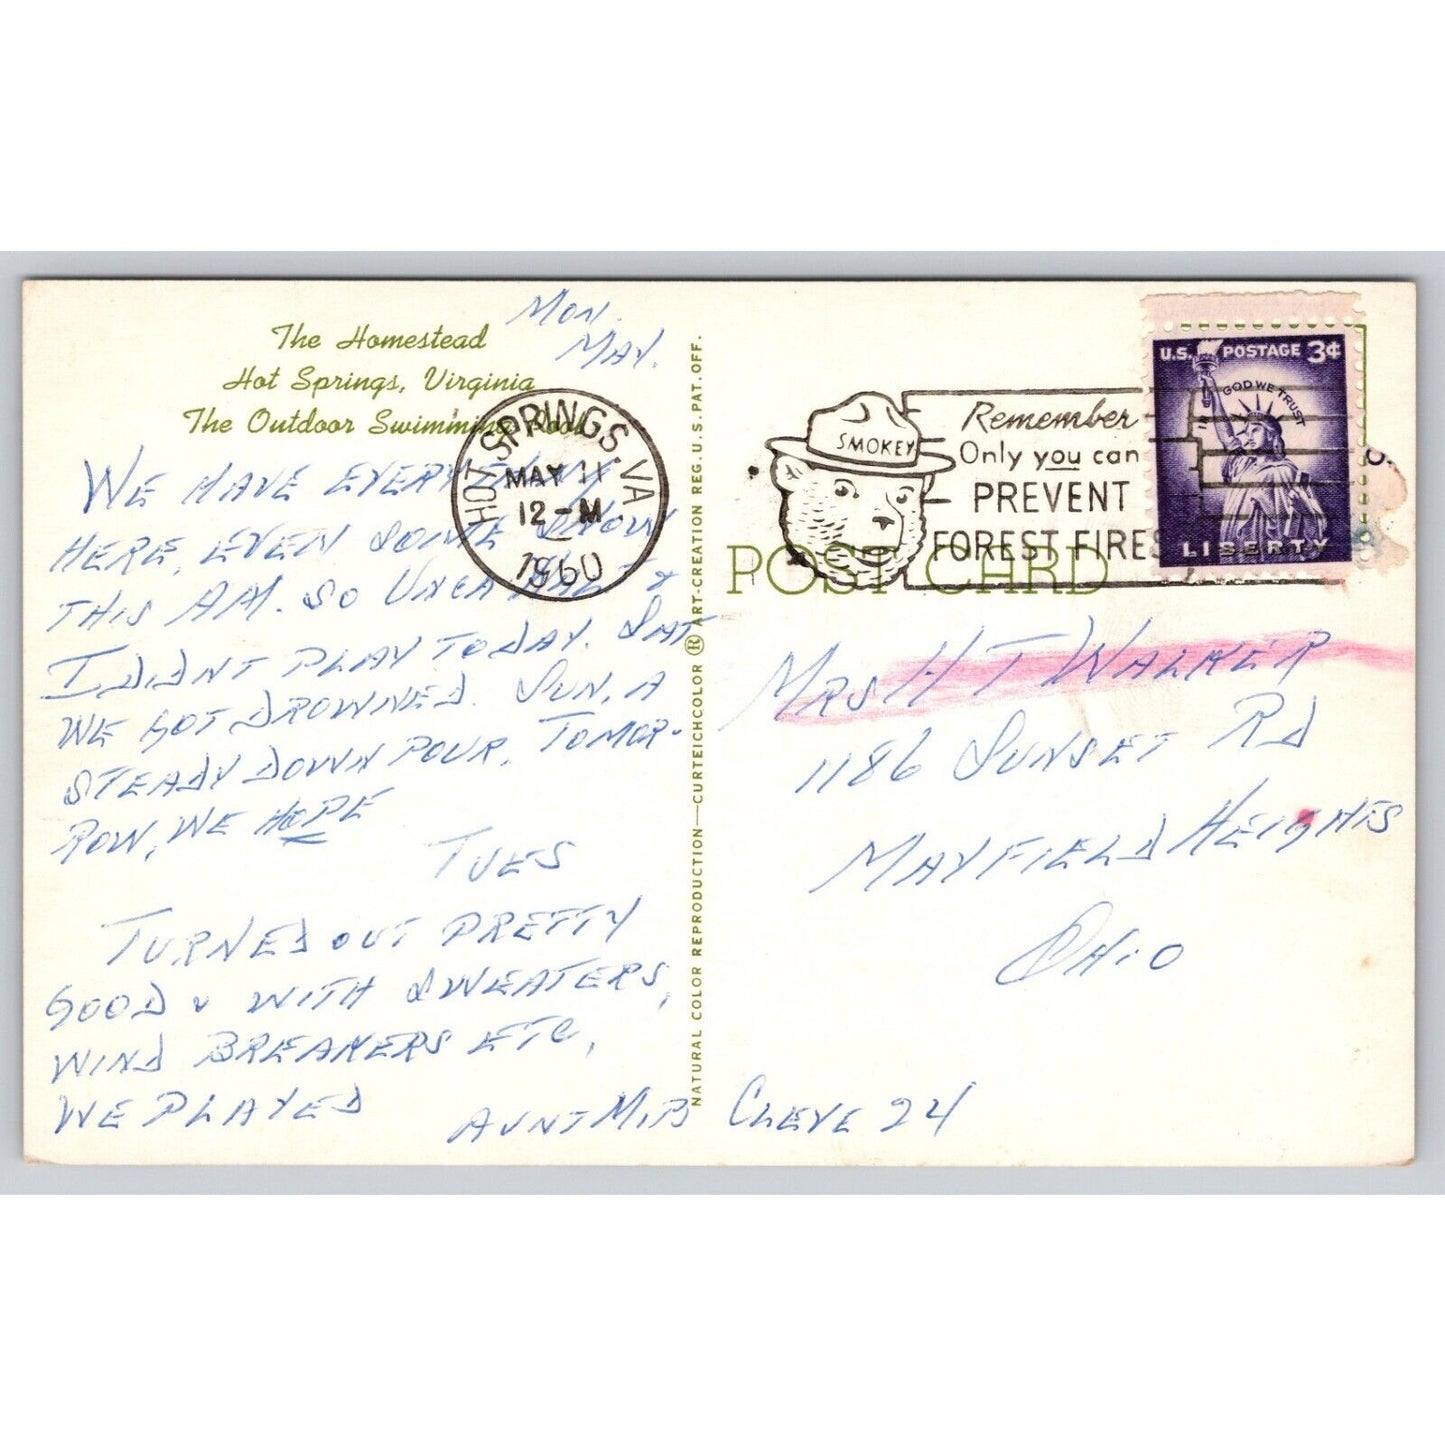 The Homestead
Hot Springs, Virginia
The Outdoor Swimming Pool
MON.
MAY.
WE HAVE EVERYTHING
HERE, EVEN SOME SNOW
THIS AM. SO UNCA HAL &
I DIDNT PLAY TODAY. SAT
WE GOT DROWNED. SUN, A
STEADY DOWN POUR, TOMOR-
ROW, WE HOPE
TUES
TURNED OUT PRETTY
GOOD & WITH SWEATERS,
WIND BREAKERS ETC,
WE PLAYED
AUNT MIB
HOT SPRINGS, VA
MAY 11
12-M
1960
NATURAL COLOR REPRODUCTION—CURTEICHCOLOR ® ART-CREATION REG. U.S. PAT. OFF.
SMOKEY
Remember
Only you can
PREVENT
FOREST FIRES
U.S. POSTAGE 3¢
IN GOD WE TRUST
LIBERTY
POST CARD
MRS H T WALKER
1186 SUNSET RD
MAYFIELD HEIGHTS
OHIO
CLEVE 24